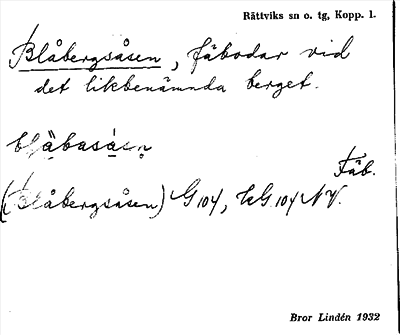 Rättviks sn o. tg, Kopp. l.
Blåbergsåsen, fäbodar vid
det likbenämnda berget.
blä̀basá̀sn̥
Fäb.
(Blåbergsåsen) G 104, LG 104 NV.
Bror Lindén 1932